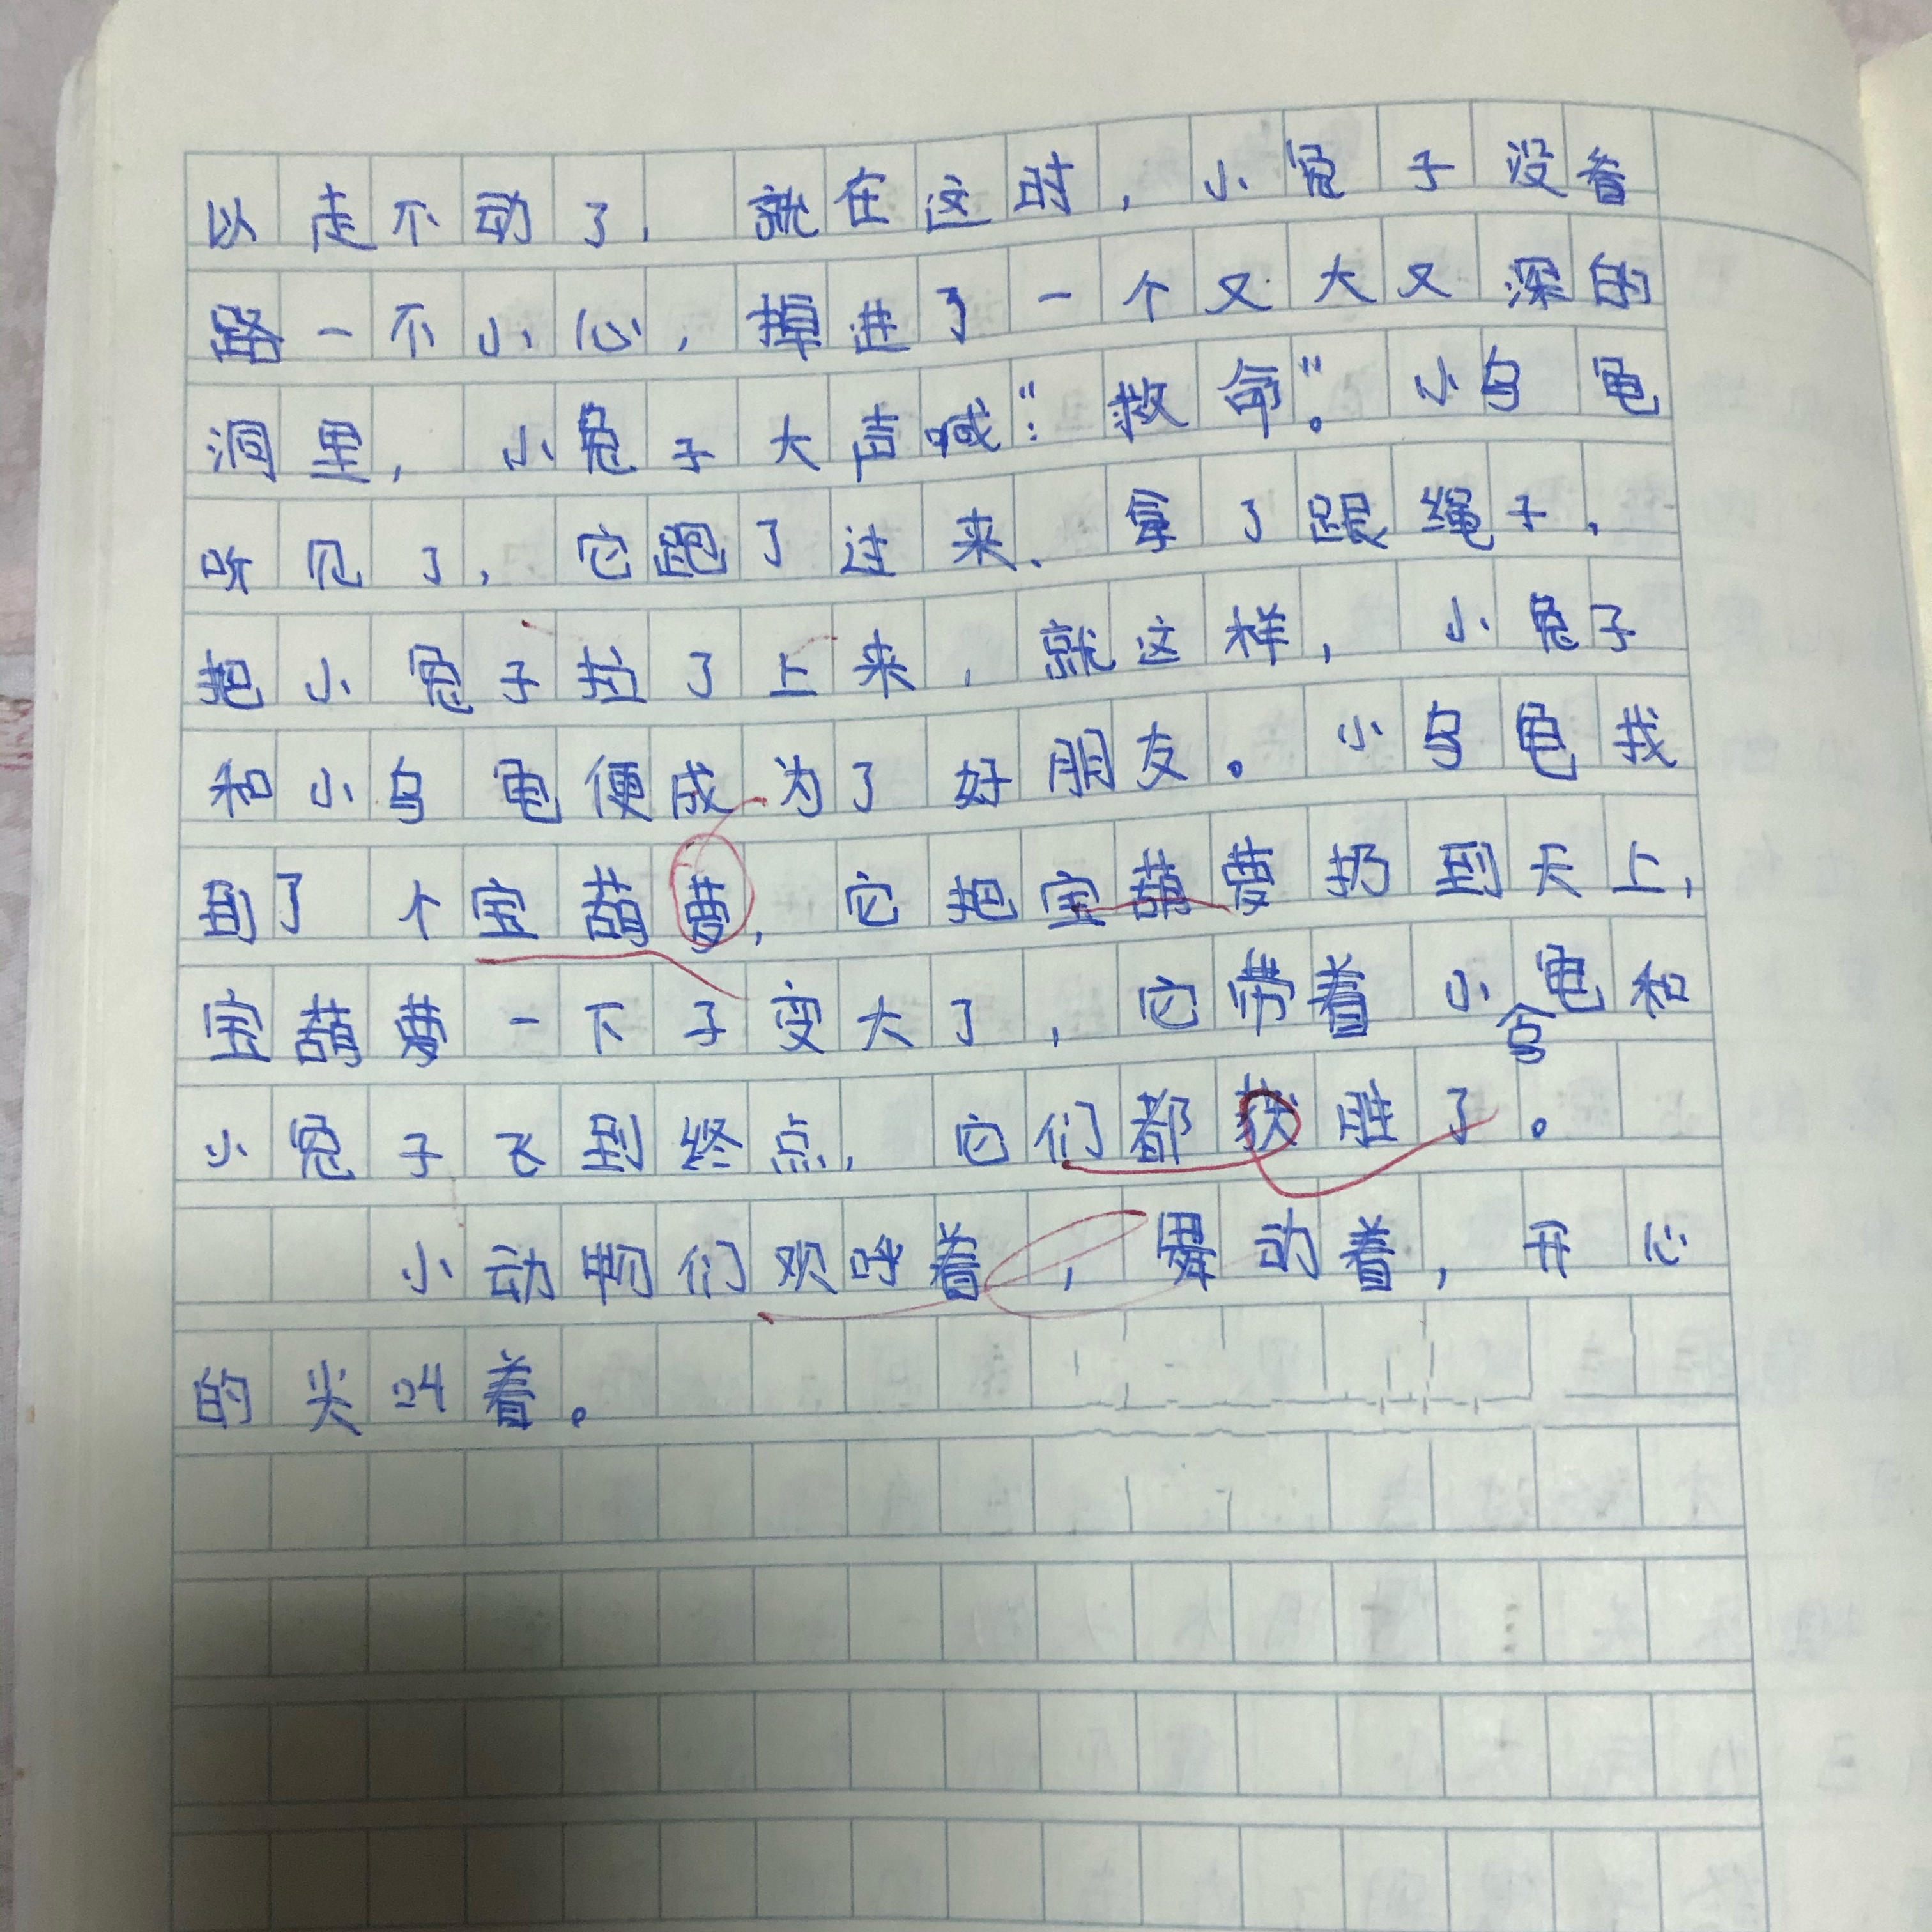 以走不动了，就在这时，小兔子没看
路一不小心，掉进了一个又大又深的
洞里，小兔子大声喊：“救命”。小乌龟
听见了，它跑了过来，拿了跟绳子，
把小兔子拉了上来，就这样，小兔子
和小乌龟便成为了好朋友。小乌龟找
到了个宝葫萝，它把宝葫萝扔到天上，
宝葫萝一下子变大了，它带着小乌龟和
小兔子飞到终点，它们都获胜了。
小动物们欢呼着，舞动着，开心
的尖叫着。